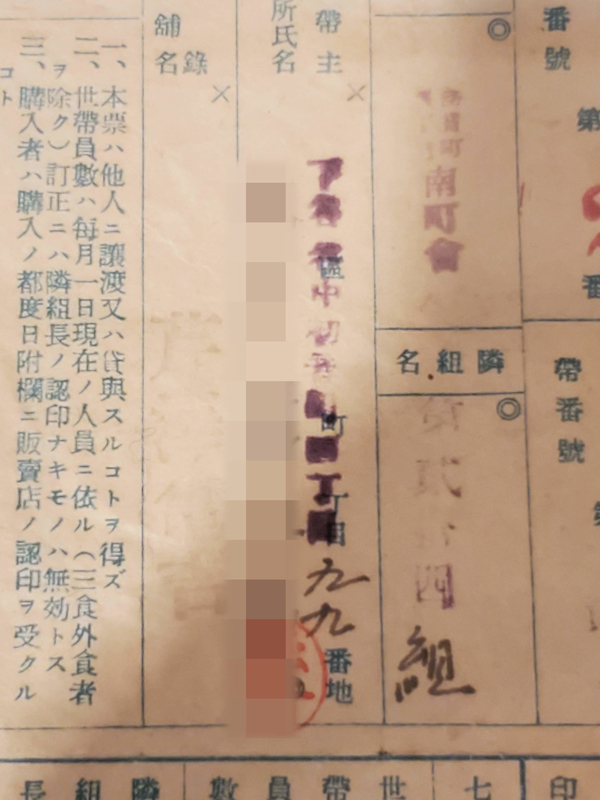 番號
第
番
帶番號
◎
南町會
隣組名
◎
貳拾四組
帶主
所氏名
×
區
町
丁目
九九番地
舖
名錄
×
一、本票ハ他人ニ讓渡又ハ貸與スルコトヲ得ズ
二、世帶員數ハ每月一日現在ノ人員ニ依ル(三食外食者
ヲ除ク)訂正ニハ隣組長ノ認印ナキモノハ無効トス
三、購入者ハ購入ノ都度日附欄ニ販賣店ノ認印ヲ受クル
コト
印
七
世帶員數
隣組長